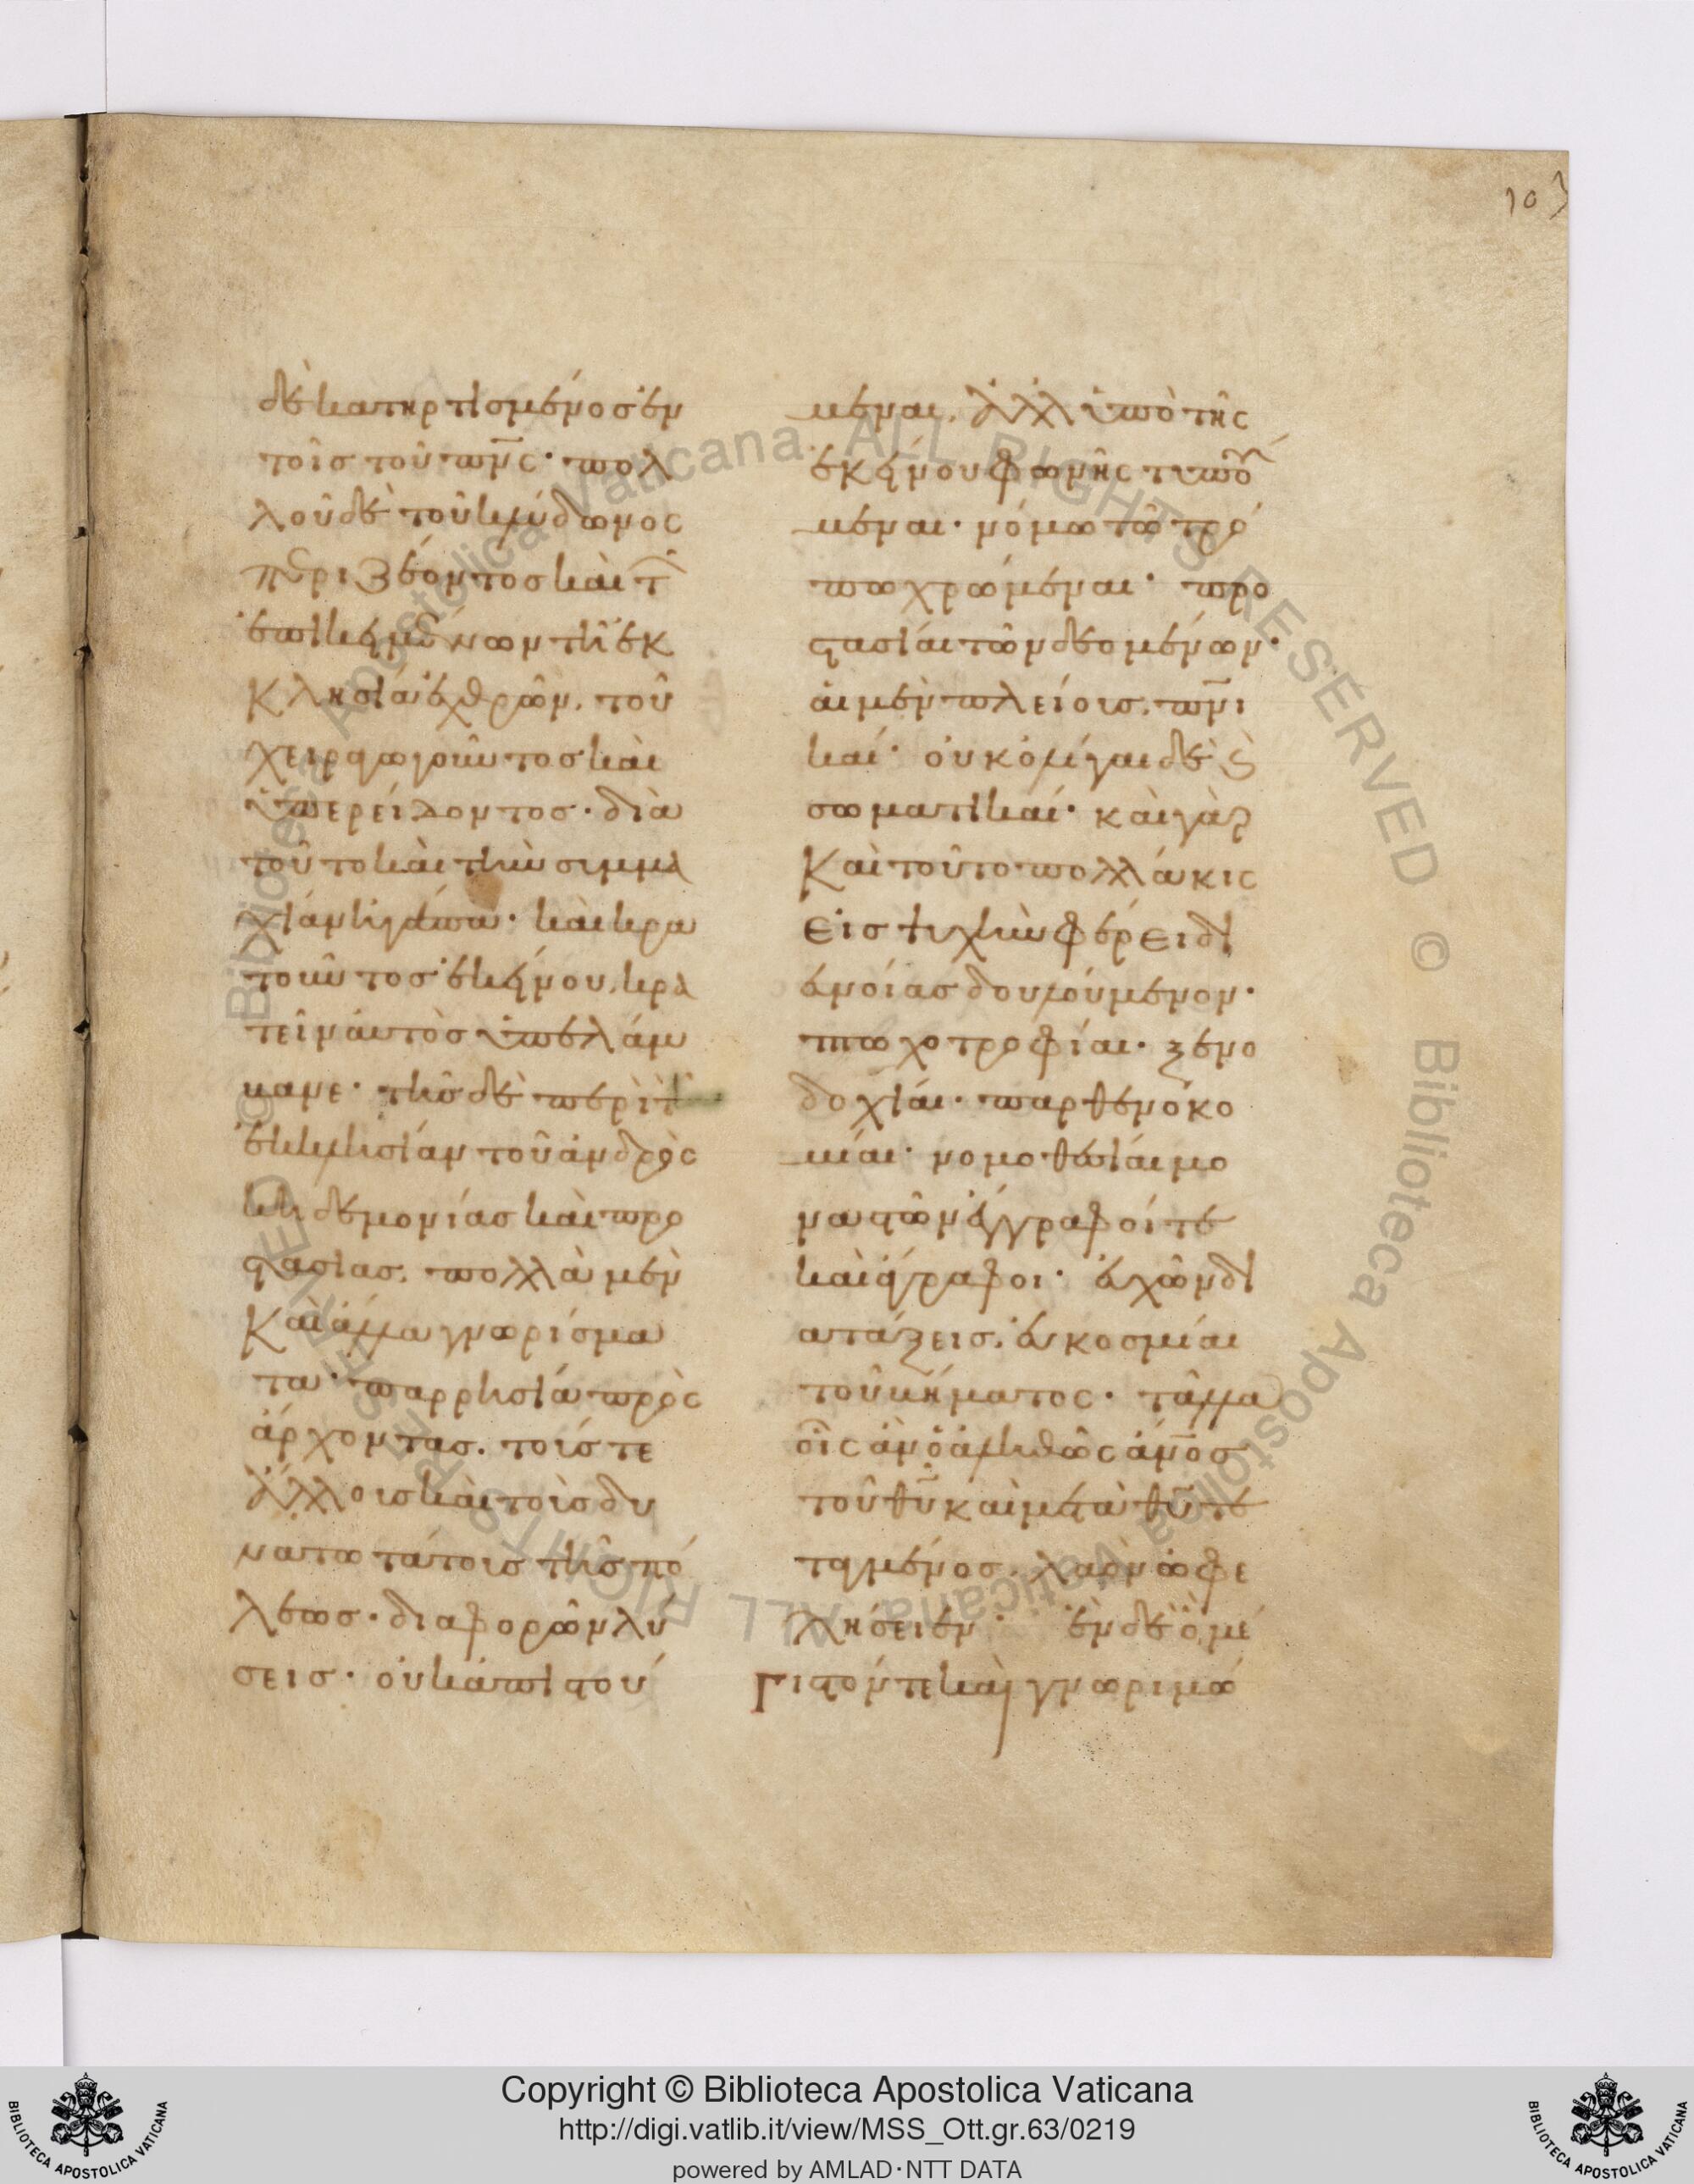 103
δὲ κατηρτισμένος ἐν
τοῖς τοῦ πν̅ς· πολ
λοῦ δὲ τοῦ κλύδωνος
περιζέοντος καὶ τ
ἐπικειμένων τῆ ἐκ
κλησία ἐχθρῶν, τοῦ
χειραγωγοῦντος καὶ
ὑπερείδοντος· διὰ
τοῦτο καὶ τὴν συμμα
χίαν ἠγάπα· καὶ κρα
τοῦντος ἐκείνου, κρα
τεῖν αὐτὸς ὑπελάμ
βανε· τῆς δὲ περὶ τ
ἐκκλησίαν τοῦ ἀνδρὸς
κηδεμονίας καὶ προ
στασίας, πολλὰ μὲν
καὶ ἄλλα γνωρίσμα
τα· παρρησία πρὸς
ἄρχοντας. τούς τε
ἄλλους καὶ τοὺς δυ
νατωτάτους τῆς πό
λεως· διαφορῶν λύ
σεις· οὐκ ἀπιστού
μεναι, ἀλλ ὑπὸ τῆς
ἐκείνου φωνῆς τυπού
μεναι· νόμω τῶ τρό
πω χρώμεναι· προ
στασίαι τῶν δεομένων·
αἱ μὲν πλείους, πν̅ι
καί· οὐκ ὀλίγαι δὲ ϗ
σωματικαί· καὶ γὰρ
καὶ τοῦτο πολλάκις
εἰς ψυχὴν φέρει δι
ευνοίας δουλούμενον·
πτωχοτροφίαι· ξενο
δοχίαι· παρθενοκο
μίαι· νομοθεσίαι μο
ναστῶν ἔγγραφοί τε
καὶ ἄγραφοι· εὐχῶν δι
ατάξεις, εὐκοσμίαι
τοῦ βήματος· τἄλλα
οἷς ἂν ὁ ἀληθῶς ἄν̅ος
τοῦ θυ̅ καὶ μετὰ θυ̅ τε
ταγμένος, λαὸν ὠφε
λήσειεν· ἓν δὲ ὃ μέ
γιστόν τε καὶ γνωριμώ
Copyright © Biblioteca Apostolica Vaticana
http://digi.vatlib.it/view/MSS_Ott.gr.63/0219
powered by AMLAD·NTT DATA
BIBLIOTECA APOSTOLICA VATICANA
BIBLIOTECA APOSTOLICA VATICANA
© Biblioteca Apostolica Vaticana. ALL RIGHTS RESERVED © Biblioteca Apostolica Vaticana. ALL RIGHTS RESERVED